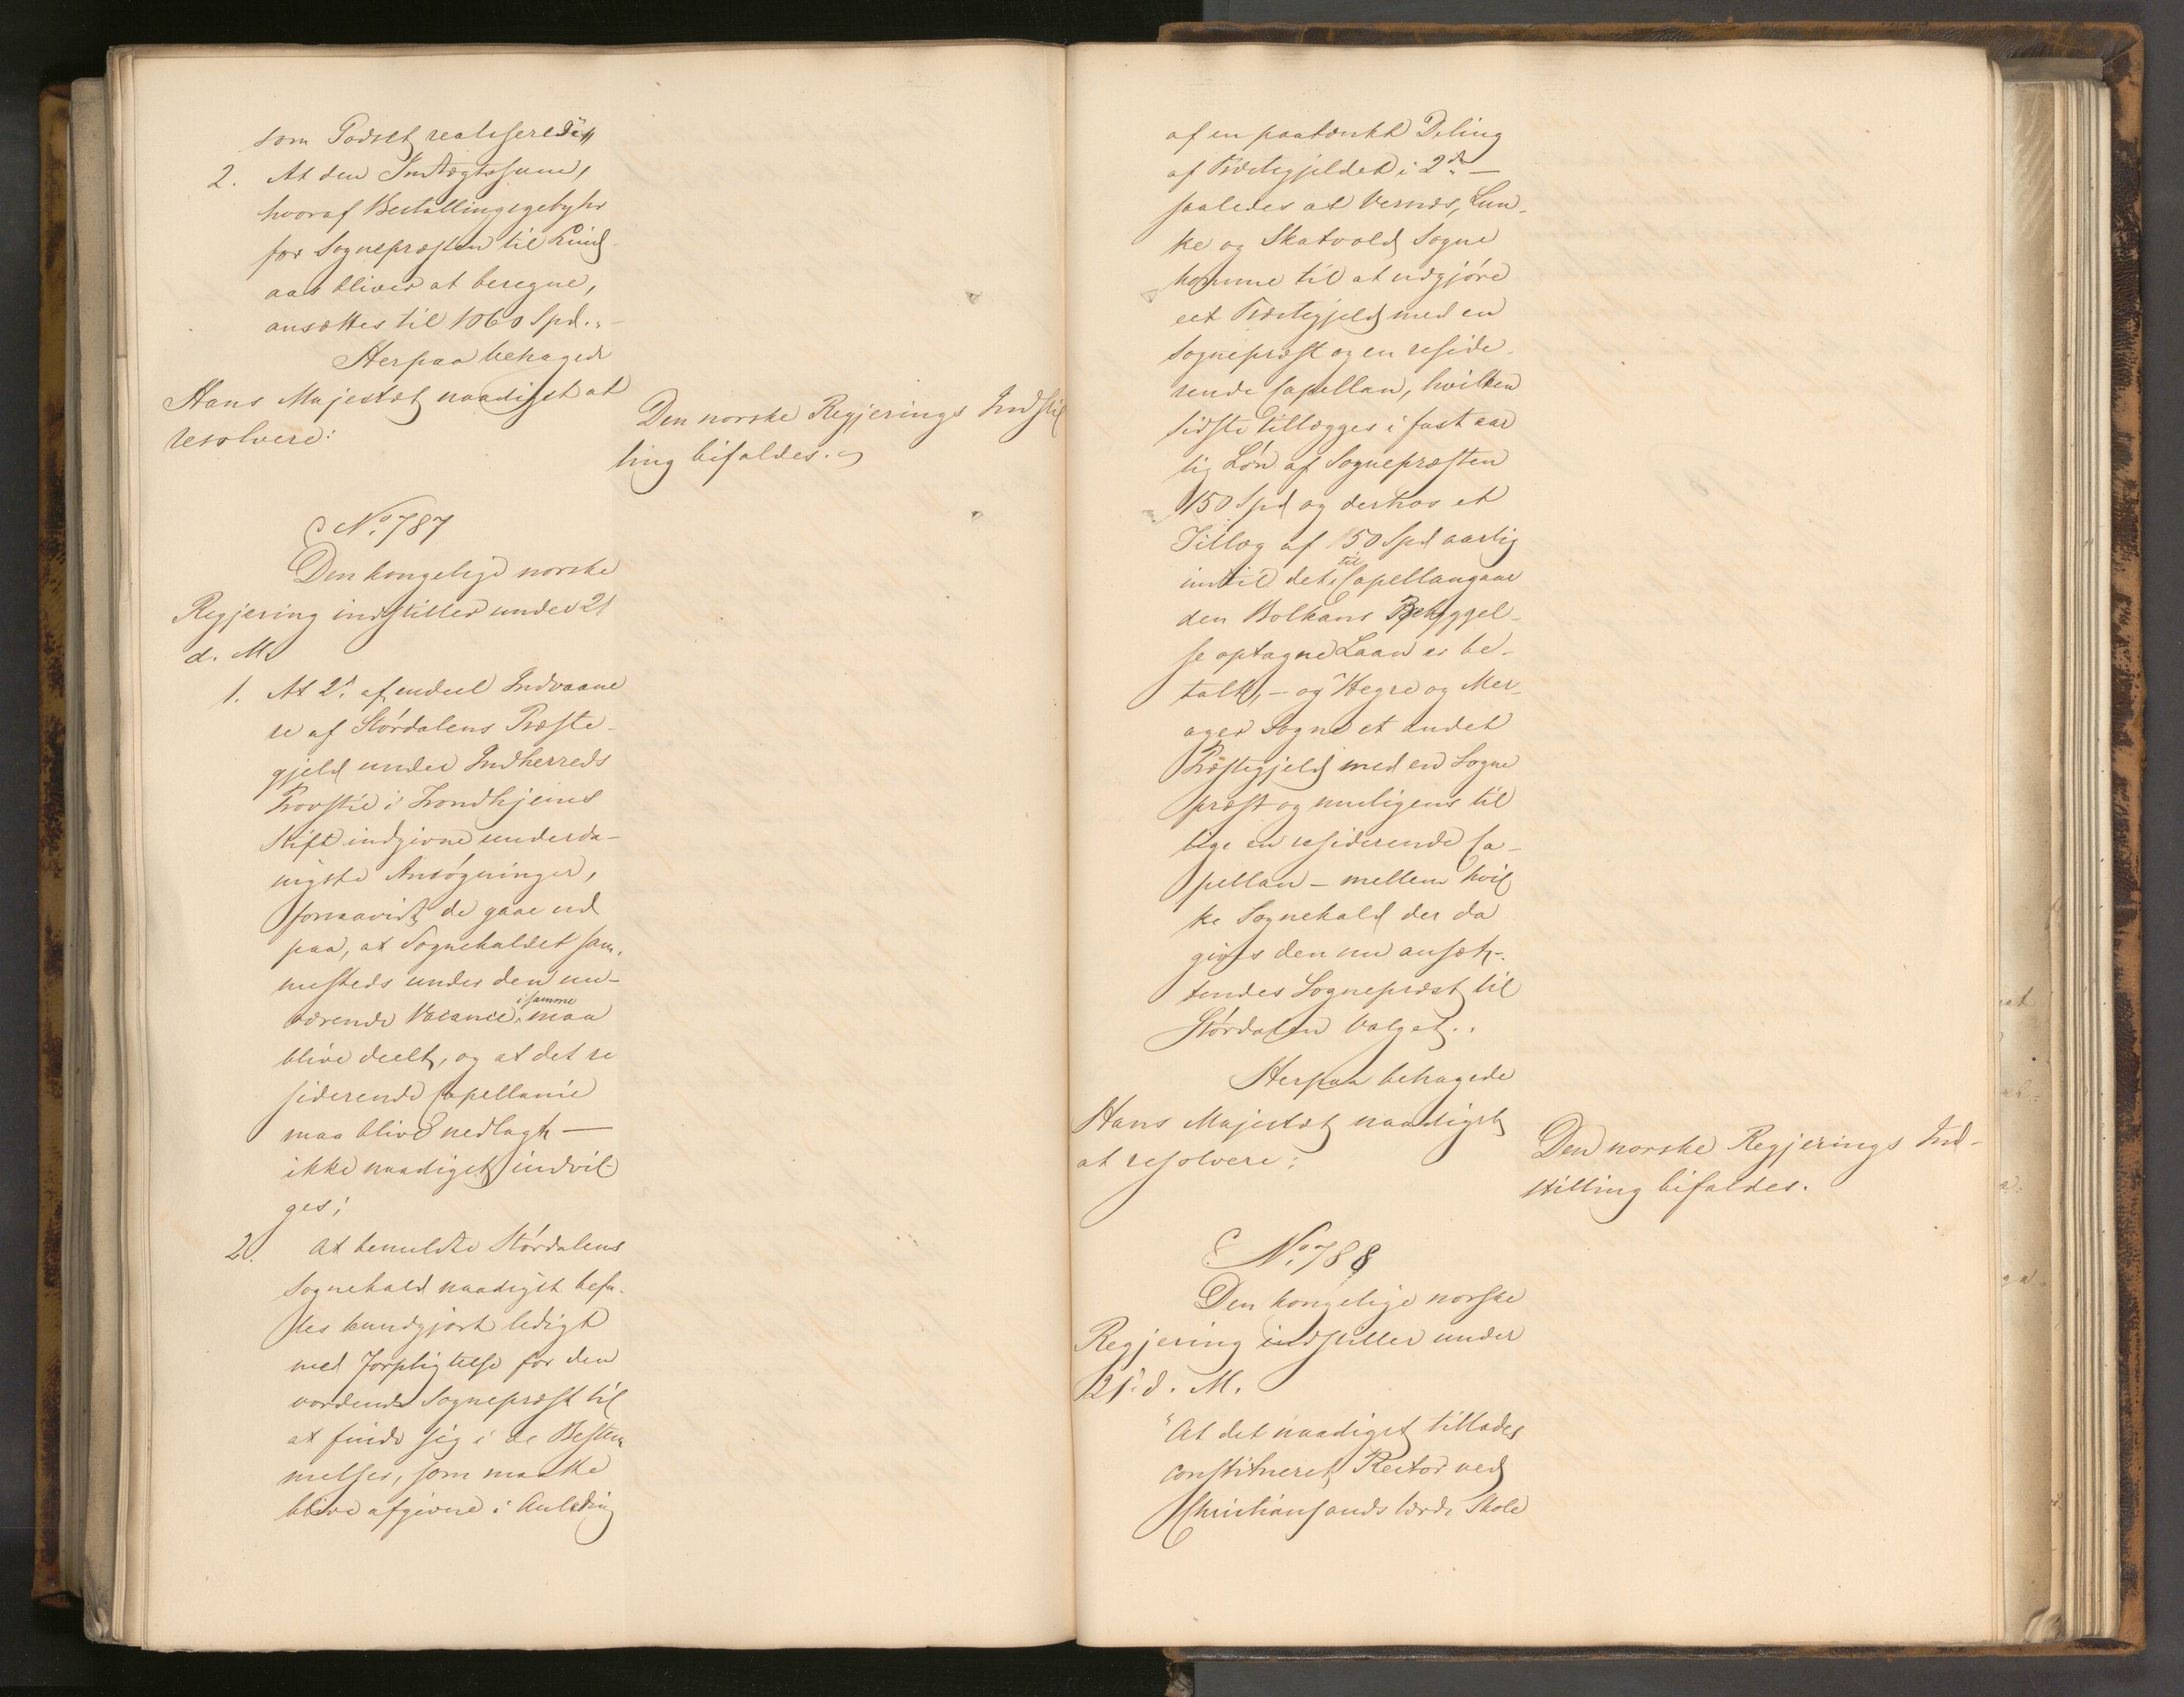 som Godset realiseres"
2. At den Indtægtssum,
hvoraf Bestallingsgebyhr
for Sognepræsten til Lind-
aas bliver at beregne,
ansættes til 1060 Spd.
Herpaa behagede
Hans Majestæt naadigst at
resolvere:
Den norske Regjerings Indstil
ling bifaldes.
No. 787
Den kongelige norske
Regjering indstiller under 21
d. M.
1. At 2de af endeel Indvaane
re af Størdalens Præste-
gjeld under Indherreds
Provstie i Trondhjems
Stift indgivne underda-
nigste Ansøgninger,
forsaavidt de gaae ud
paa, at Sognekaldet sam-
mesteds under den nu-
værende Vacance i samme maa
blive deelt, og at det re
siderende Capellanie
maa blive nedlagt —
ikke naadigst indvil-
ges;
2. At bemeldte Størdalens
Sognekald naadigst befa-
les kundgjort ledigt
med Forpligtelse for den
vordende Sognepræst til
at finde sig i de Bestem
melser, som maatte
blive afgivne i Anledning
af en paatænkt Deling
af Præstegjeldet i 2de —
saaledes at Vernæs, Lun-
ke og Skatvold Sogne
komme til at udgjøre
eet Præstegjeld med en
Sognepræst og en reside-
rende Capellan, hvilken
sidste tillægges i fast aar
lig Løn af Sognepræsten
150 Spd og derhos et
Tillæg af 50 Spd aarlig
indtil det til Capellangaar
den Bolkans Bebyggel-
se optagne Laan er be-
talt, — og Hegre og Mer-
ager Sogne et andet
Præstegjeld med en Sogne
præst og muligens til
lige en residerende Ca-
pellan — mellem hvil
ke Sognekald der da
gives den nu ansæt-
tendes Sognepræst til
Størdalen Valget.
Herpaa behagede
Hans Majestæt naadigst
at resolvere:
Den norske Regjerings Ind-
stilling bifaldes.
No. 788
Den kongelige norske
Regjering indstiller under
21 d. M.
"At det naadigst tillades
constitueret Rector ved
Christiansands lærde Skole